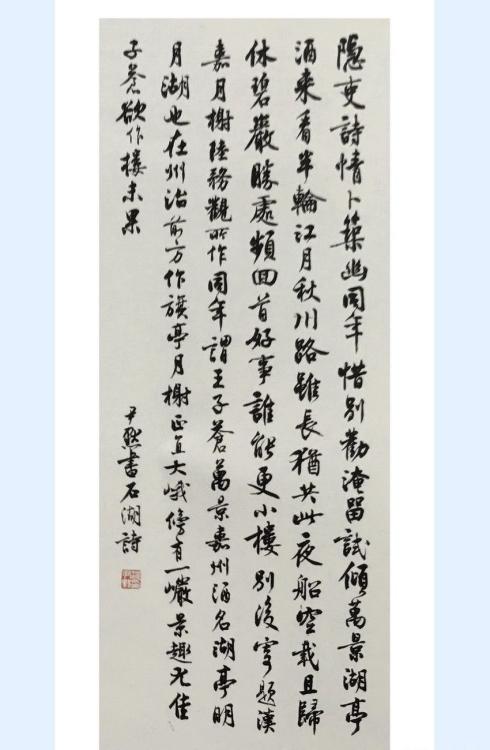 隱吏詩情卜築幽同年惜別勸淹畱試傾萬景湖亭
酒來看半輪江月秋川路雖長猶共此夜船空載且歸
休碧巖勝處頻回首好事誰能更小樓 別後寄題漢
嘉月榭陸務觀所作同年謂王子蒼萬景嘉州酒名湖亭明
月湖也在州治前方作旗亭月榭正直大峨傍有一巖景趣尤佳
子蒼欲作樓未果
尹默書石湖詩